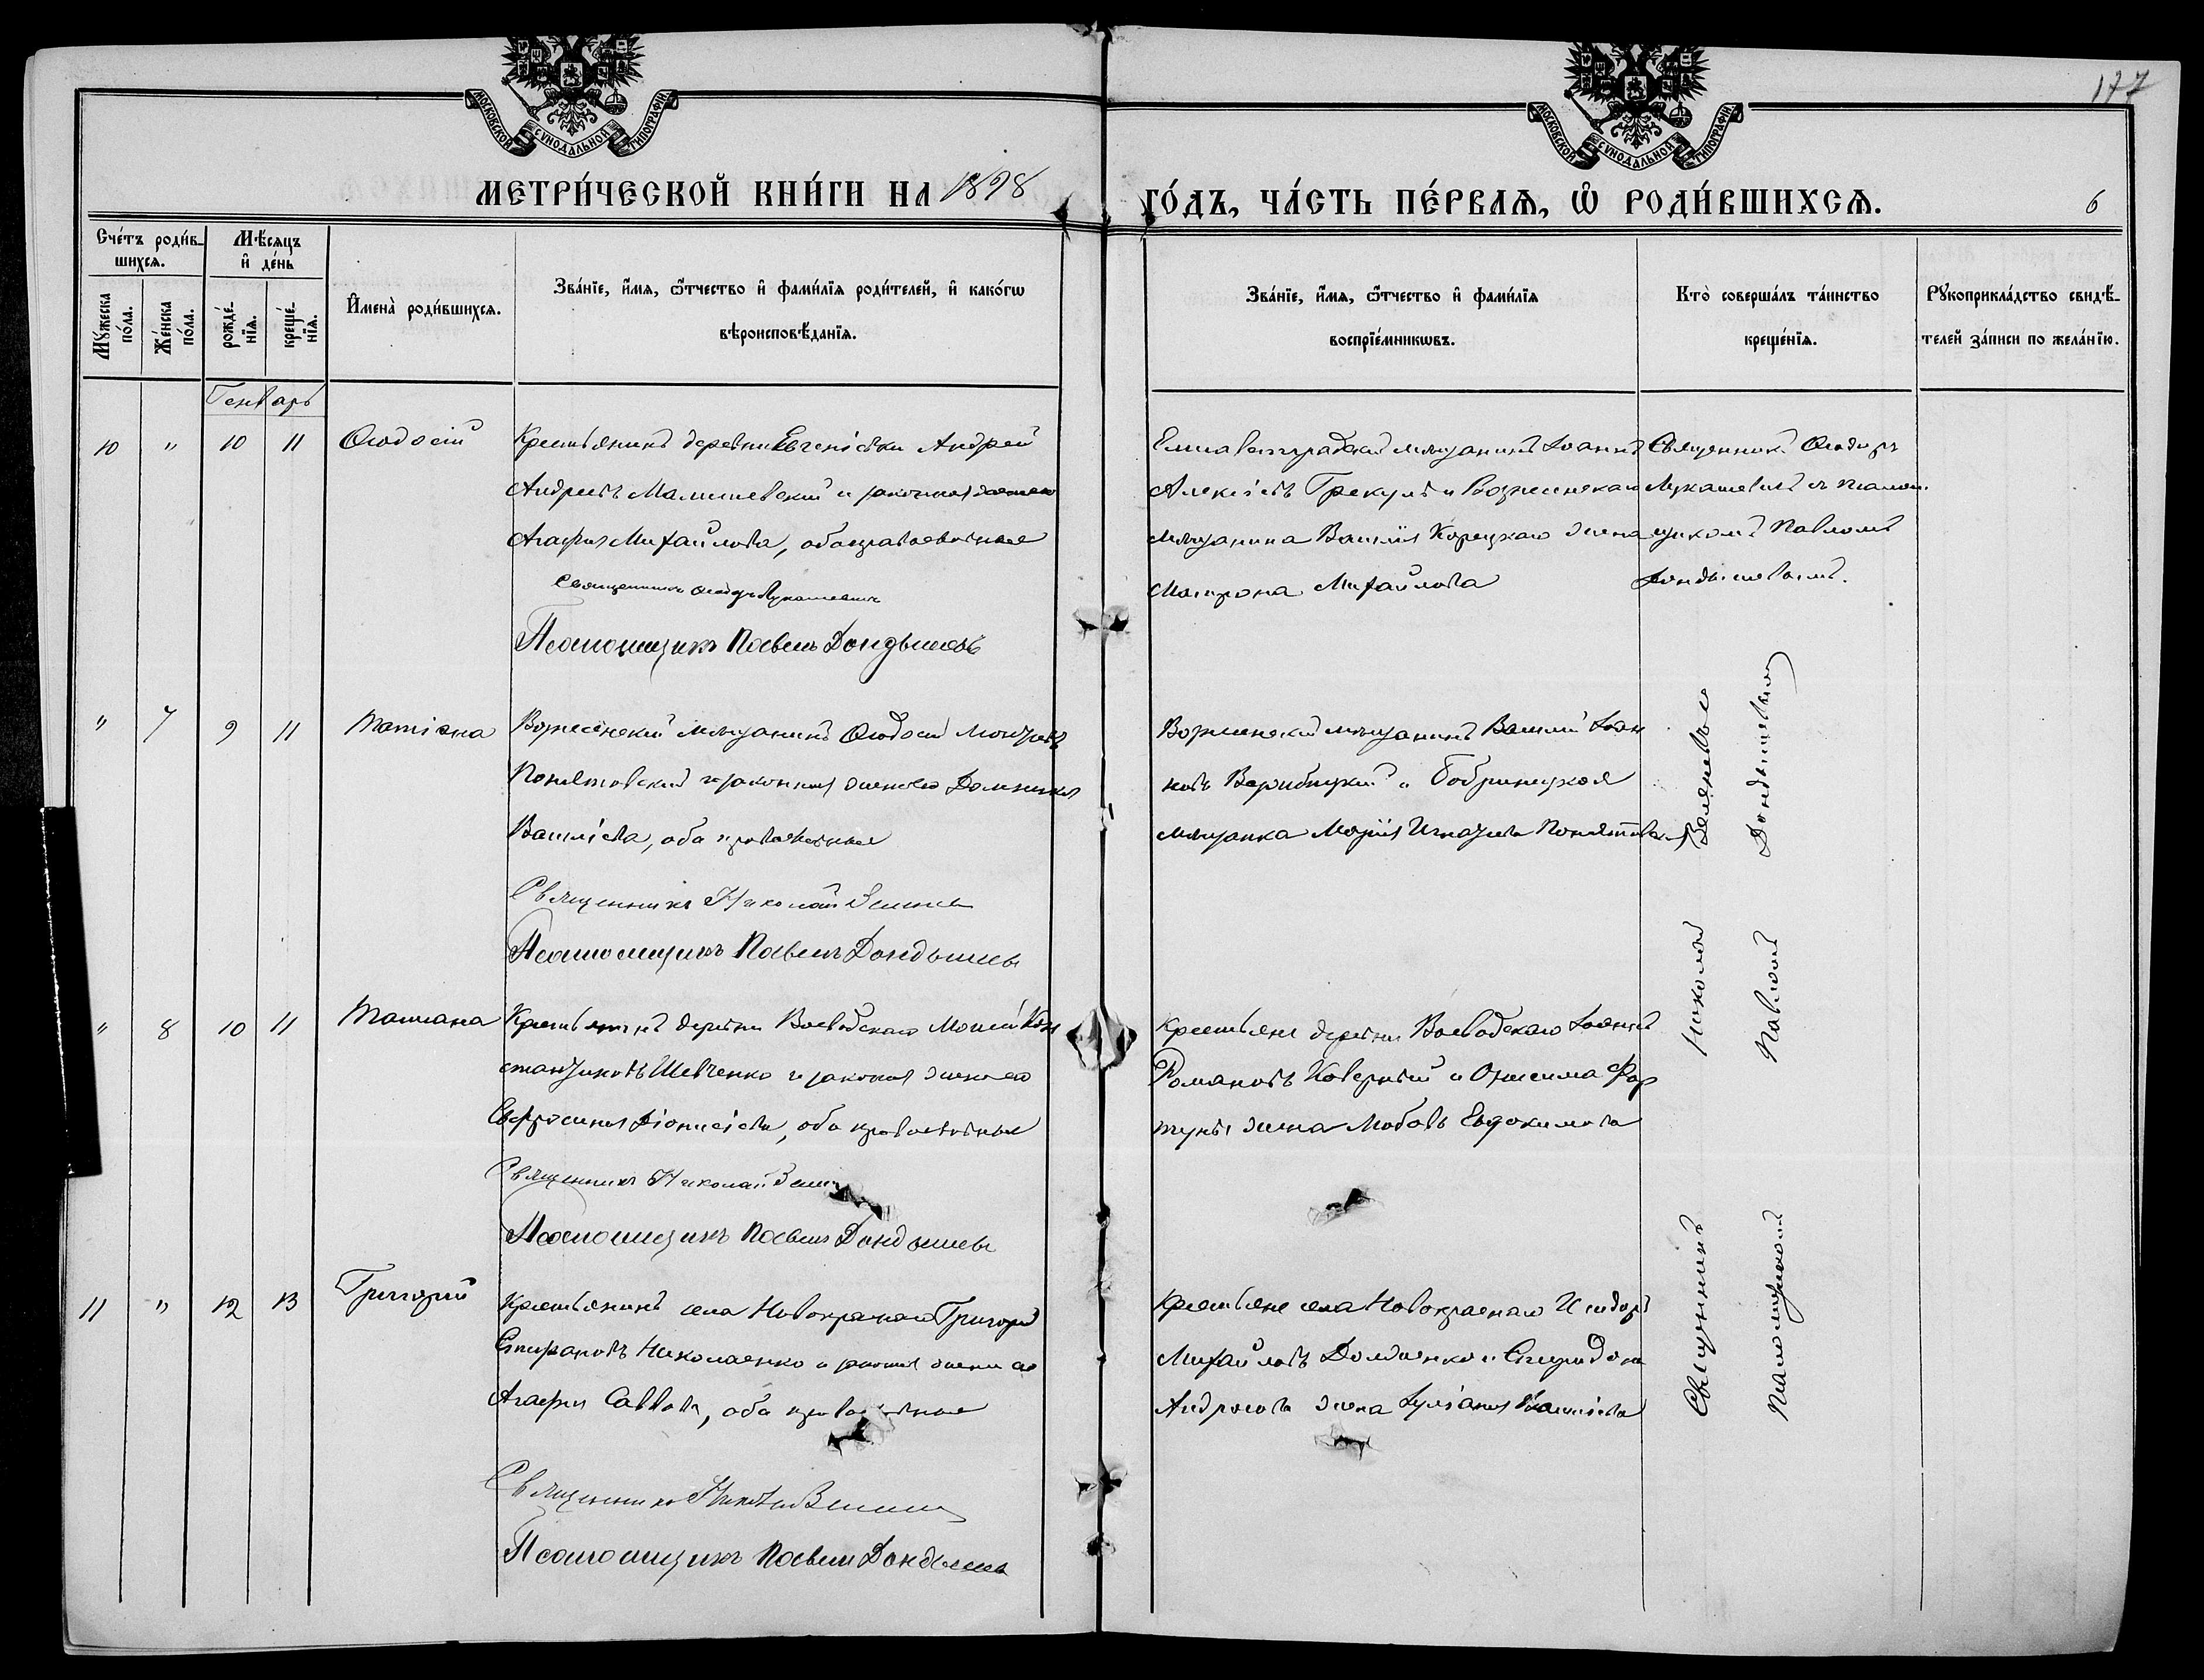 МОСКОВСКОЙ СѴНОДАЛЬНОЙ ТИПОГРАФІИ.
МОСКОВСКОЙ СѴНОДАЛЬНОЙ ТИПОГРАФІИ.
177
МЕТРИ́ЧЕСКОЙ КНИ́ГИ НА 1898
ГО́ДЪ, ЧА́СТЬ ПЕ́РВАѦ, Ѡ҆ РОДИ́ВШИХСѦ.
6
Сче́тъ роди́в-
шихсѧ.
Мѣ́сѧцъ
и҆ де́нь
Мꙋ́жеска
по́ла.
Же́нска
по́ла.
рожде́-
нїѧ.
креще́-
нїѧ.
И҆мена̀ роди́вшихсѧ.
Зва́нїе, и҆́мѧ, ѻ҆́тчество и҆ фами́лїѧ роди́телей, и҆ како́гѡ
вѣроисповѣ́данїѧ.
Зва́нїе, и҆́мѧ, ѻ҆́тчество и҆ фами́лїѧ
воспрїе́мникѡвъ.
Кто̀ соверша́лъ та́инство
креще́нїѧ.
Рꙋкоприкла́дство свидѣ́-
телей за́писи по жела́нїю.
Генварь
10 " 10 11 Ѳеодосій
Крестьянинъ деревни Евгеніевки Андрей
Андреевъ Малишевскій и законная жена его
Агафія Михайлова, оба православные
Священникъ Ѳеодоръ Лукашевичъ
Псаломщикъ Павелъ Дондышевъ
Елисаветградскій мѣщанинъ Іоаннъ
Алексѣевъ Грекулъ и Вознесенскаго
мѣщанина Василія Корецкаго жена
Матрона Михайлова
Священникъ Ѳеодоръ
Лукашевичъ съ псалом-
щикомъ Павломъ
Дондышевымъ.
" 7 9 11 Татіана
Вознесенскій мѣщанинъ Ѳеодосій
Понятовскій и законная жена его Домникія
Василіева, оба православные
Священникъ Николай
Псаломщикъ Павелъ Дондышевъ
Вознесенскій мѣщанинъ Василій Іоан
новъ и Бобринецкая
мѣщанка Марія Игнатіева
" 8 10 11 Татіана
Крестьянинъ деревни Воеводскаго Моисей Кон
стантиновъ Шевченко и законная жена его
Евфросинія Діонисіева, оба православные
Священникъ Николай
Псаломщикъ Павелъ Дондышевъ
Крестьяне деревни Воеводскаго Іоаннъ
Романовъ и Онисима Фор
туны жена Любовь Евдокимова
11 " 12 13 Григорій
Крестьянинъ села Новокраснаго Григорій
Стефановъ Николаенко и законная жена его
Агафія Саввова, оба православные
Священникъ Николай
Псаломщикъ Павелъ Дондышевъ
Крестьяне села Новокраснаго Исидоръ
Михайловъ Долженко и Спиридона
Андросова жена Іуліанія Василіева
Священникъ Николай
Псаломщикомъ Павломъ Дондышевымъ